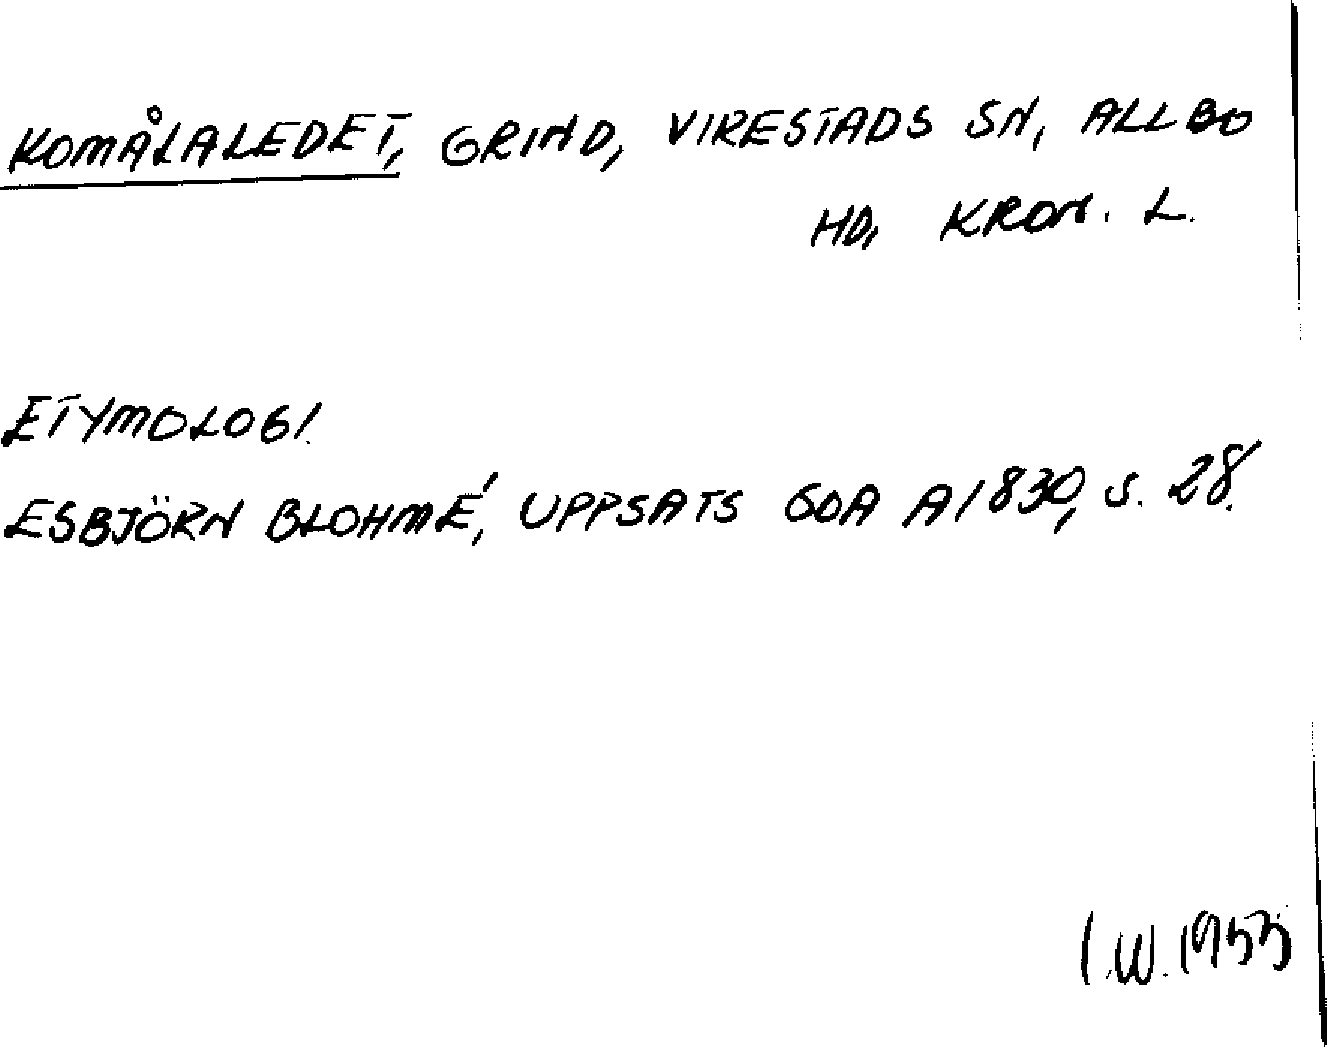 KOMÅLALEDET, GRIND, VIRESTADS SN, ALLBO
HD, KRON. L.
ETYMOLOGI.
ESBJÖRN BLOHMÉ, UPPSATS GDA A1830, S. 28.
I.W. 1955